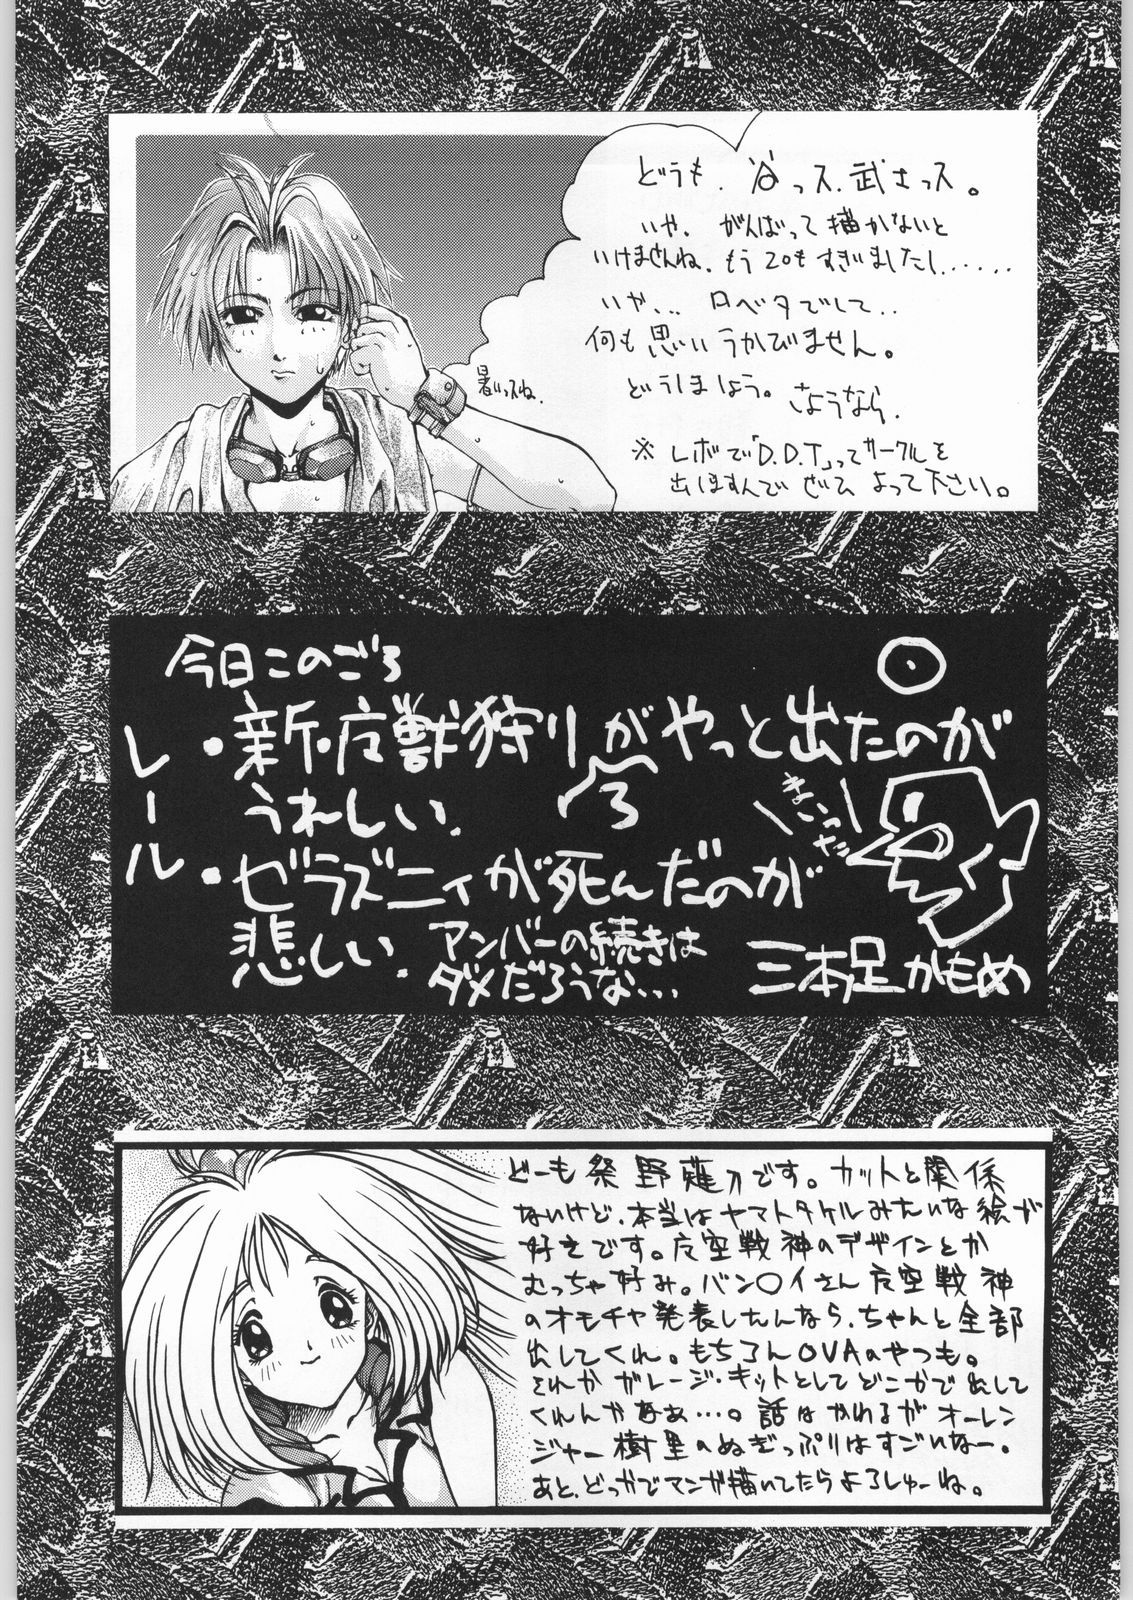 どうも、谷っス.武さっス。
いや、がんばって描かないと
いけませんね、もう20もすぎましたし......
いや... ロベタでして..
何も思いうかびません。
どうしましょう。さようなら.
暑いっスね.
※レボで「D.D.T」ってサークルを
出ますんで ぜひ よって下さい。
今日このごろ
レール
・新・魔獣狩りがやっと出たのが
うれしい.
まいった
・ゼラズニィが死んだのが
悲しい.
アンバーの続きは
ダメだろうな...
三本足かもめ
どーも祭野薙刀です。カットと関係
ないけど、本当はヤマトタケルみたいな絵が
好きです。魔空戦神のデザインとか
むっちゃ好み。バン〇イさん魔空戦神
のオモチャ発表したんなら、ちゃんと全部
出してくれ。もちろんOVAのやつも。
それかガレージ・キットとしてどこかで出して
くれんかなぁ...。話はかわるがオーレン
ジャー樹里のぬぎっぷりはすごいなー。
あと、どっかでマンガ描いてたらよろしゅーね。